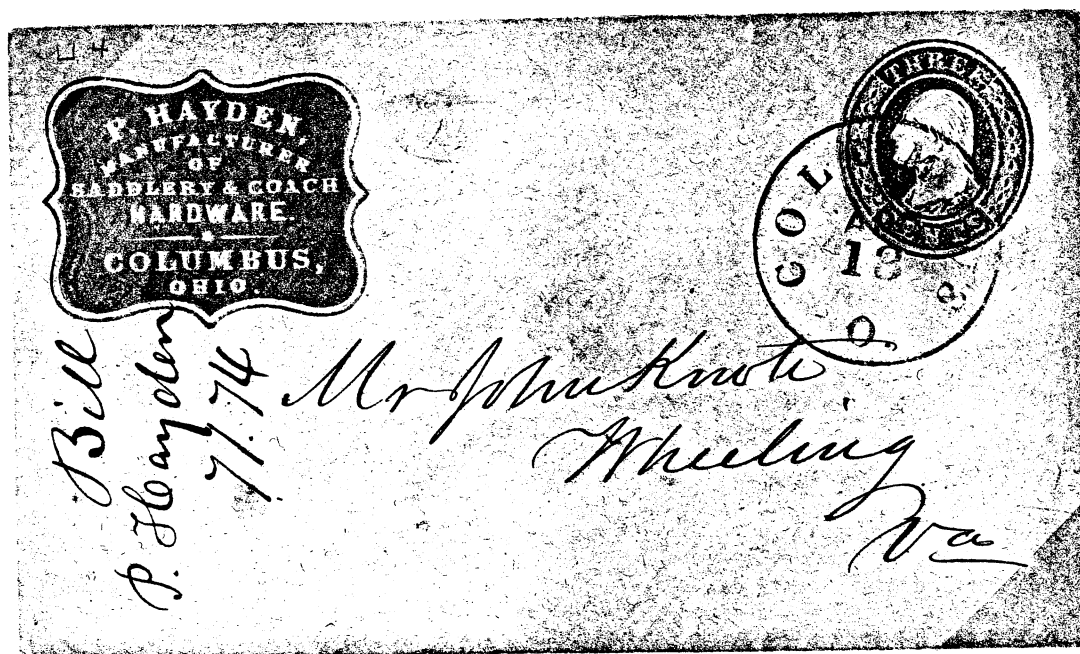 U 4
P. HAYDEN,
MANUFACTURER
OF
SADDLERY & COACH
HARDWARE
COLUMBUS,
OHIO.
THREE
CENTS
COL
18
O
Bill
P. Hayden
71.74
Mr John Knote
Wheeling
Va